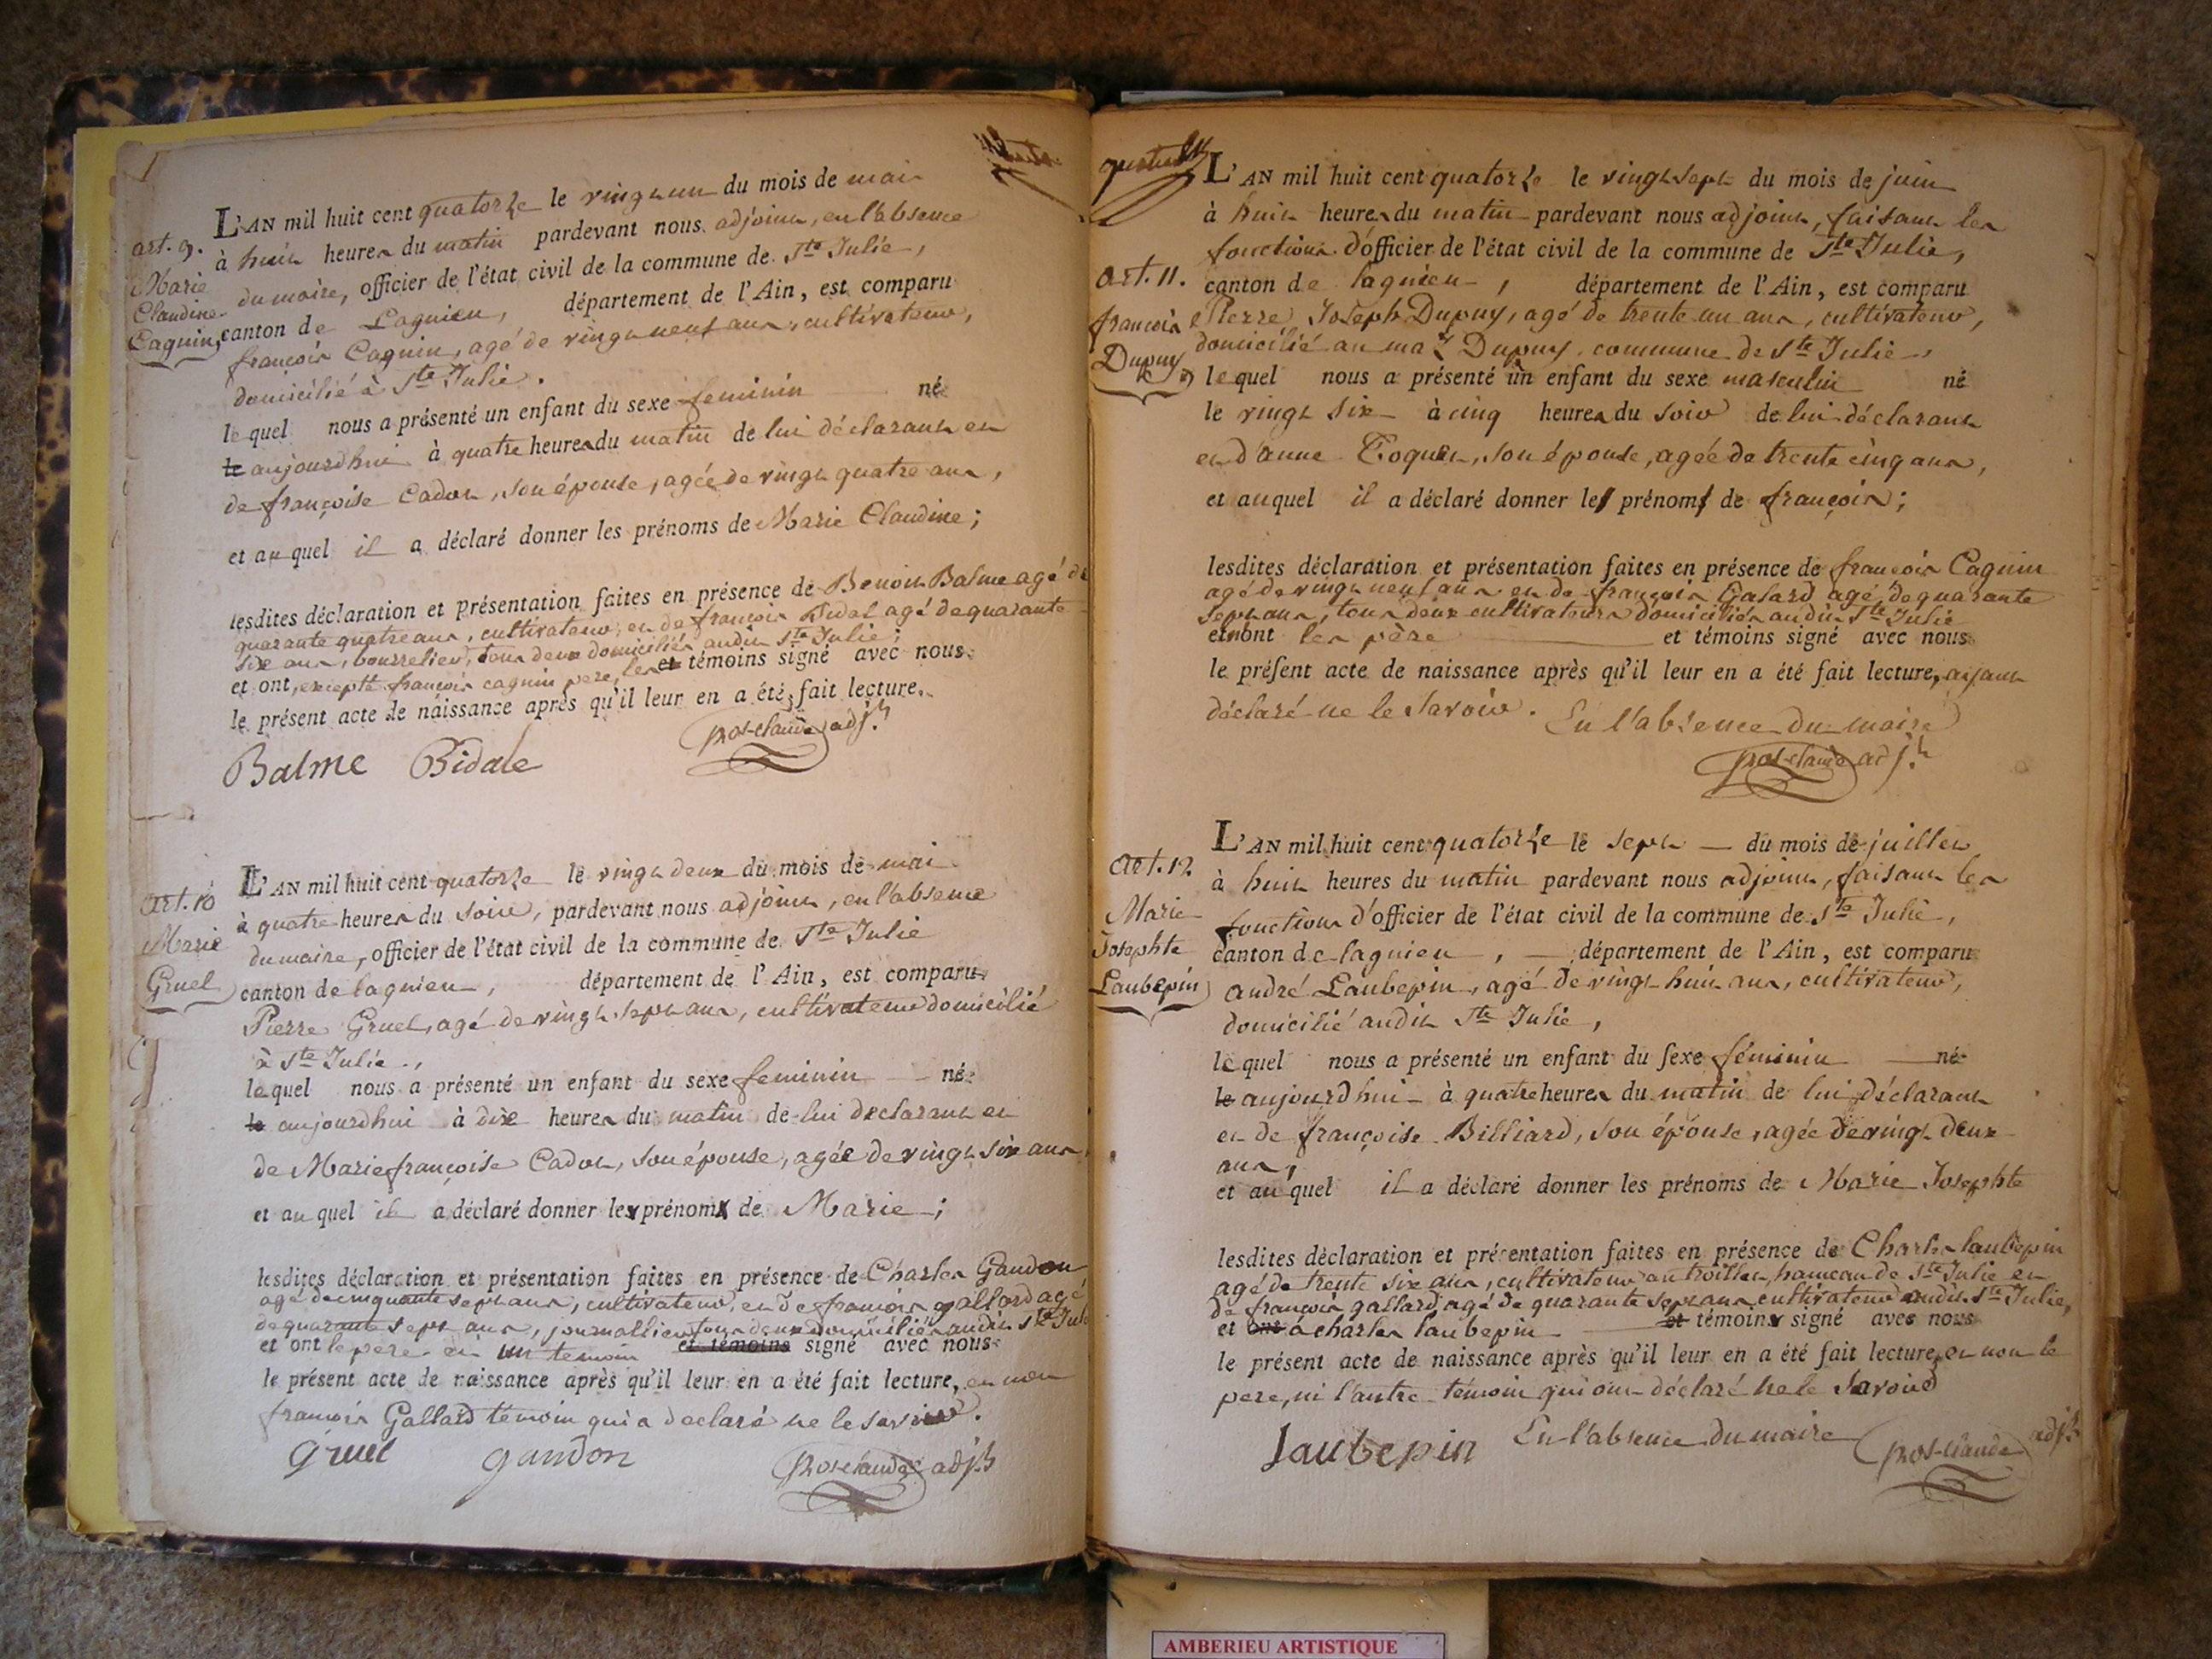 art. 9.
Marie
Claudine
Caquin,
L'AN mil huit cent quatorze le vingt un du mois de mai
à huit heures du matin pardevant nous adjoint, en l'absence
du maire, officier de l'état civil de la commune de Ste Julie,
canton de Lagnieu, département de l'Ain, est comparu
françois Caquin, agé de vingt neuf ans, cultivateur,
domicilié à Ste Julie.
lequel nous a présenté un enfant du sexe feminin né
le aujourdhui à quatre heures du matin de lui déclarant et
de françoise Cadot, son épouse, agée de vingt quatre ans,
et auquel il a déclaré donner les prénoms de Marie Claudine;
lesdites déclaration et présentation faites en présence de Benoit Balme agé de
quarante quatre ans, cultivateur, et de françois Bidal agé de quarante
six ans, bourrelier, tous deux domiciliés audit Ste Julie;
et ont, excepté françois caquin pere, les et témoins signé avec nous
le présent acte de naissance après qu'il leur en a été fait lecture.
Balme Bidale adjt
art. 10
Marie
Gruel
L'AN mil huit cent quatorze le vingt deux du mois de mai
à quatre heures du soir, pardevant nous adjoint, en l'absence
du maire, officier de l'état civil de la commune de Ste Julie
canton de lagnieu, département de l'Ain, est comparu
Pierre Gruel, agé de vingt sept ans, cultivateur domicilié
à Ste Julie.,
lequel nous a présenté un enfant du sexe feminin né
le aujourdhui à dix heures du matin de lui declarant et
de Marie françoise Cadot, son épouse, agée de vingt six ans
et auquel il a déclaré donner les prénoms de Marie;
lesdites déclaration et présentation faites en présence de Charles Gandon
agé de cinquante sept ans, cultivateur, et de françois gallard agé
de quarante sept ans, journallier tous deux domiciliés audit Ste Julie
et ont le pere et un temoin et témoins signé avec nous
le présent acte de naissance après qu'il leur en a été fait lecture, et non
françois Gallard témoin qui a declaré ne le savoir.
Gruel gandon adjt
Art. 11.
françois
Dupuy
L'AN mil huit cent quatorze le vingt sept du mois de juin
à huit heures du matin pardevant nous adjoint, faisant les
fonctions d'officier de l'état civil de la commune de Ste Julie,
canton de lagnieu, département de l'Ain, est comparu
Pierre Joseph Dupuy, agé de trente un ans, cultivateur,
domicilié au maz Dupuy, commune de Ste Julie,
lequel nous a présenté un enfant du sexe masculin né
le vingt six à cinq heures du soir de lui déclarant
et d'anne Toquet, son épouse, agée de trente cinq ans,
et auquel il a déclaré donner les prénoms de françois;
lesdites déclaration et présentation faites en présence de françois Caquin
agé de vingt neuf ans et de françois Galard agé de quarante
sept ans, tous deux cultivateurs domiciliés audit Ste Julie
et nont les père et témoins signé avec nous
le présent acte de naissance après qu'il leur en a été fait lecture, ayant
déclaré ne le savoir. En l'absence du maire
adjt
Art. 12
Marie
Josephte
Laubepin
L'AN mil huit cent quatorze le sept du mois de juillet
à huit heures du matin pardevant nous adjoint, faisant les
fonctions d'officier de l'état civil de la commune de Ste Julie,
canton de lagnieu, département de l'Ain, est comparu
andré Laubepin, agé de vingt huit ans, cultivateur,
domicilié audit Ste Julie,
lequel nous a présenté un enfant du sexe féminin né
le aujourdhui à quatre heures du matin de lui déclarant
et de françoise Billiard, son épouse, agée de vingt deux
ans,
et auquel il a déclaré donner les prénoms de Marie Josephte
lesdites déclaration et présentation faites en présence de Charles laubepin
agé de trente six ans, cultivateur au troillet, hameau de Ste Julie et
de françois gallard agé de quarante sept ans cultivateur audit Ste Julie,
et ont à charles laubepin et témoins signé avec nous
le présent acte de naissance après qu'il leur en a été fait lecture, et non le
pere, ni l'autre témoin qui ont déclaré ne le savoir
laubepin En l'absence du maire adjt
AMBERIEU ARTISTIQUE